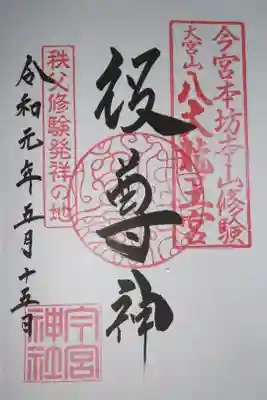 今宮本坊本山修験
大宮山
八大龍王宮
役尊神
秩父修験発祥の地
令和元年五月十五日
今宮神社